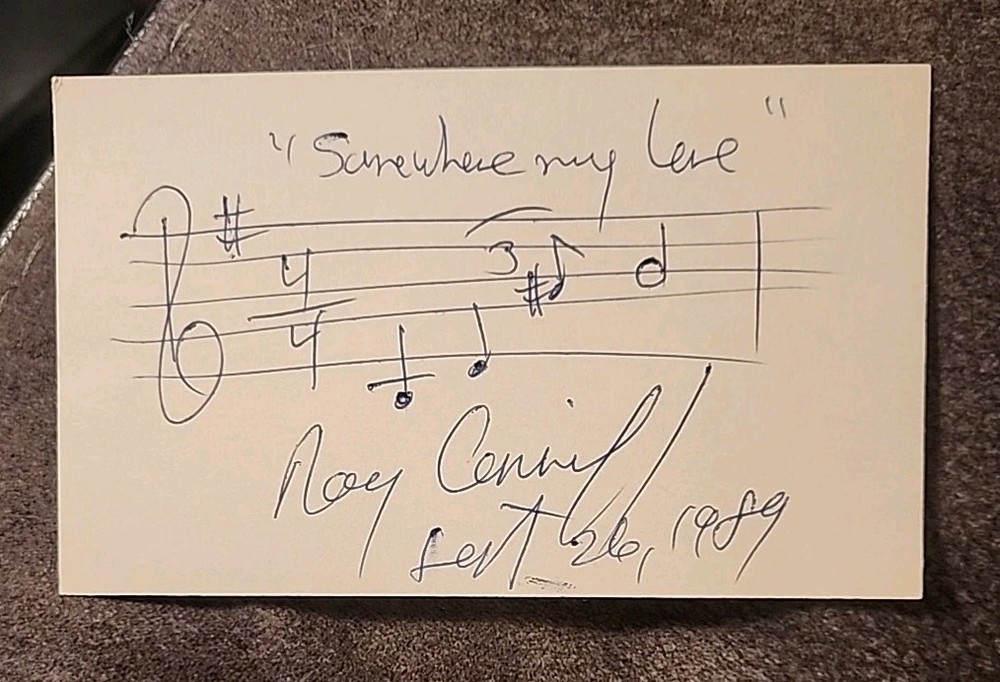 "Somewhere my love"
#
4
4
3
#
Ray Conniff
Sept 26, 1989